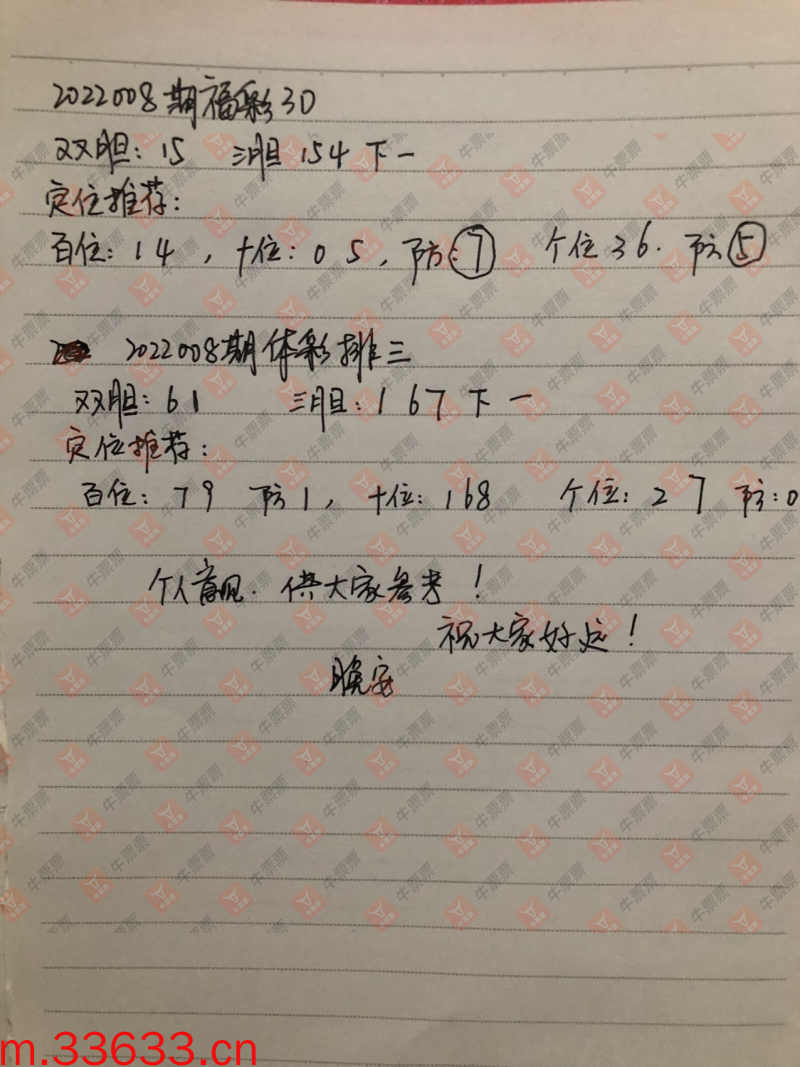 2022008期福彩3D
双胆：15 三胆 154下一
定位推荐：
百位：14，十位：05，防：7 个位36. 防5
2022008期体彩排三
双胆：61 三胆：167下一
定位推荐：
百位：79 防1，十位：168 个位：27 防：0
个人意见. 供大家参考！
祝大家好运！
晚安
牛票票
m.33633.cn